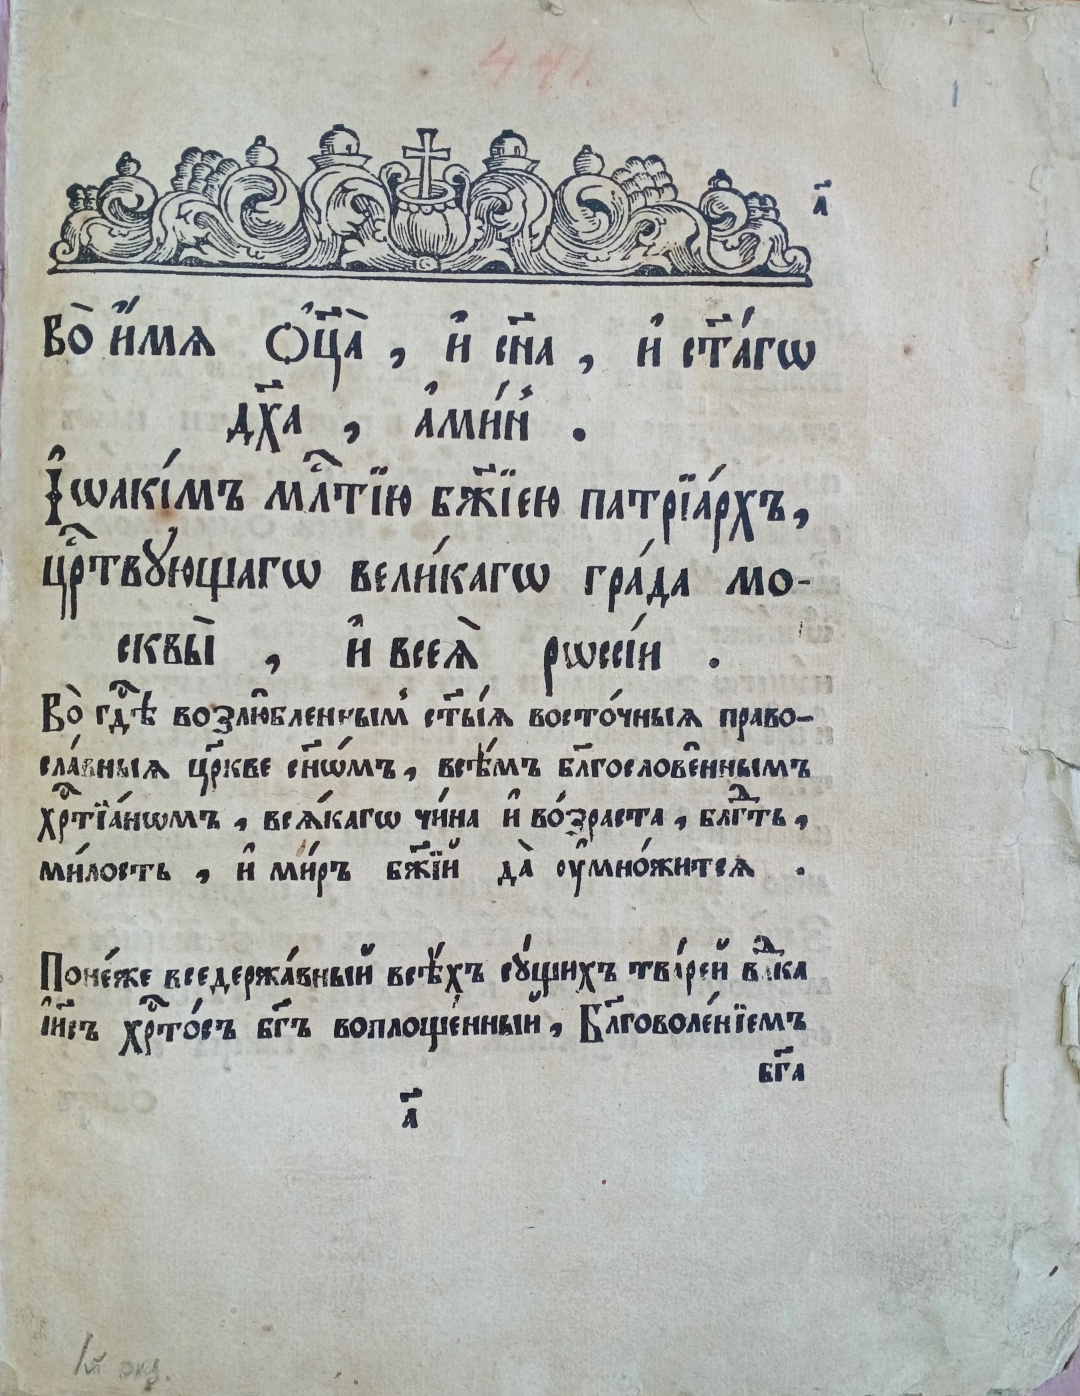 441.
1
а҃
Во̀ и҆́мѧ ѻ҆ц҃а̀, и҆ сн҃а, и҆ ст҃а́гѡ
дх҃а, а҆ми́нь.
І҆ѡаки́мъ млⷭ҇тїю бж҃їею патрїа́рхъ,
црⷭ҇твꙋющагѡ вели́кагѡ гра́да мо-
сквы̀, и҆ всеѧ̀ рѡссі́и.
Во̀ гдⷭ҇ѣ возлю́бленнымъ ст҃ы́ѧ восто́чныѧ право-
сла́вныѧ цр҃кве сн҃ѡ́мъ, всѣ́мъ бл҃гослове́ннымъ
хрⷭ҇тїа́нѡмъ, всѧ́кагѡ чи́на и҆ во́зраста, блгⷣть,
ми́лость, и҆ ми́ръ бж҃їй да̀ ᲂу҆мно́житсѧ.
Поне́же вседержа́вный всѣ́хъ сꙋ́щихъ тва́рей влⷣка
і҆и҃съ хрⷭ҇то́съ бг҃ъ воплоще́нный, Бл҃говоле́нїемъ
бг҃а
а҃